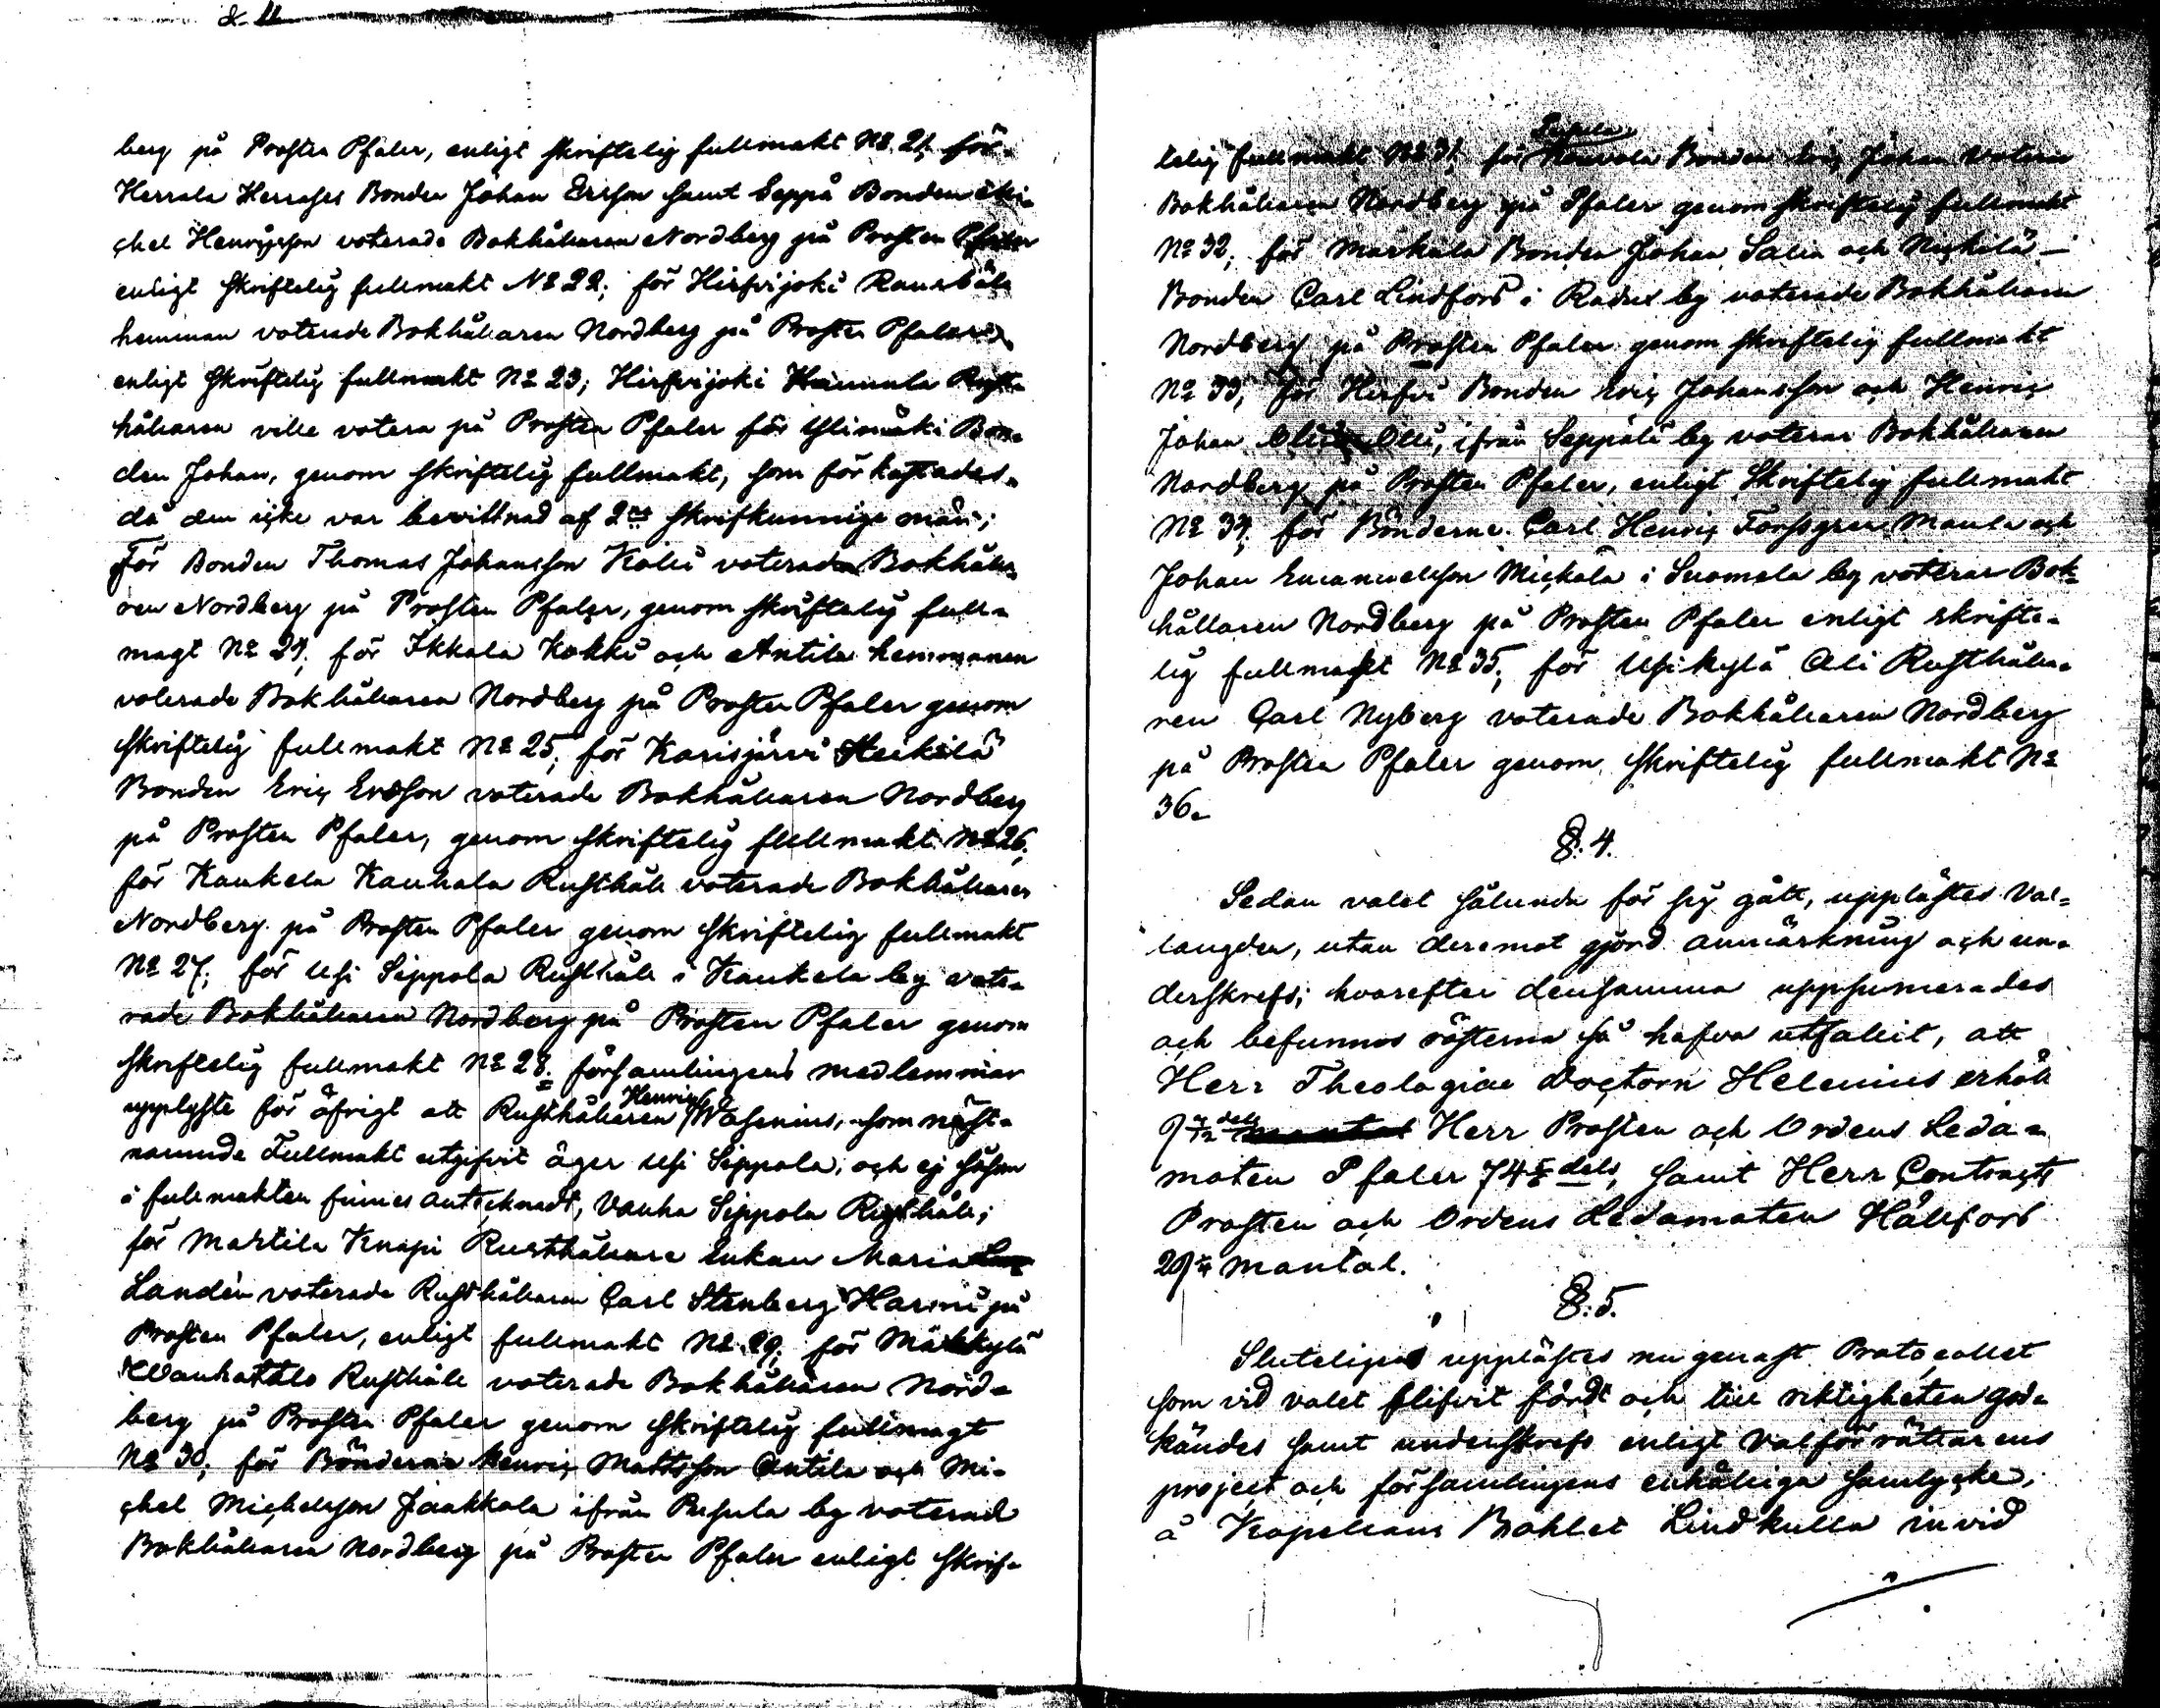 berg på Prosten Pfaler, enligt skriftelig fullmakt N:o 21, för
Herrala Herrases Bonden Johan Ersson samt Seppä Bonden Mi-
chel Henricsson voterade Bokhållaren Nordberg på Prosten Pfaler
enligt skriftelig fullmakt N:o 22; för Hirsijoki
hemman voterade Bokhållaren Nordberg på Prosten Pfaler
enligt skriftelig fullmakt N:o 23; Hirsijoki Hannula Rust-
hållaren ville votera på Prosten Pfaler för Ylimäki Bon-
den Johan, genom skriftelig fullmakt, som förkastades,
då den icke var bevittnad af 2:ne skrifkunnige män;
För Bonden Thomas Johansson Kolu voterade Bokhålla-
ren Nordberg på Prosten Pfaler, genom skriftelig full-
magt N:o 24; för Ikkala Kokki och Antila hemmanen
voterade Bokhållaren Nordberg på Prosten Pfaler genom
skriftelig fullmakt N:o 25; för Karisjärvi Heikilä
Bonden Eric Ersson voterade Bokhållaren Nordberg
på Prosten Pfaler, genom skriftelig fullmakt N:o 26;
för Kaukela Kauhala Rusthåll voterade Bokhållaren
Nordberg på Prosten Pfaler genom skriftelig fullmakt
N:o 27; för Usi Sippola Rusthåll i Kaukela by vote-
rade Bokhållaren Nordberg på Prosten Pfaler genom
skriftelig fullmakt N:o 28; församlingens medlemmar
upplyste för öfrigt att Rusthållaren Henric Wasenius, som näst-
nämnde Fullmakt utgifvit äger Usi Sippola, och ej såsom
i fullmakten finnes antecknadt, Vanha Sippola Rusthåll;
för Martila Knapi Rusthållare Enkan Maria
Landén voterade Rusthållaren Carl Stenberg Harmi på
Prosten Pfaler, enligt fullmakt N:o 29; för Märkkylä
Wanhatalo Rusthåll voterade Bokhållaren Nord-
berg på Prosten Pfaler genom skriftelig fullmagt
N:o 30; för Bönderne Henric Mattsson Antila och Mi-
chel Michelsson Jaakkola ifrån Pusula by voterad
Bokhållaren Nordberg på Prosten Pfaler enligt skrif-
telig fullmakt N:o 31, för Bonden Eric Johan votera
Bokhållaren Nordberg på Pfaler genom skriftelig fullmakt
N:o 32; för Markula Bonden Johan Salin och
Bonden Carl Lindfors i Radus by voterade Bokhållaren
Nordberg på Prosten Pfaler genom skriftelig fullmakt
N:o 33; för Hirfvi Bonden Eric Johansson och Henric
Johan Olli, ifrån Seppälä by voterar Bokhållaren
Nordberg på Prosten Pfaler, enligt Skriftelig fullmakt
N:o 34; för Bönderne Carl Henric Forssgren Maula och
Johan Emanuelsson Mickala i Suomela by voterar Bok-
hållaren Nordberg på Prosten Pfaler enligt skrifte-
lig fullmackt N:o 35; för Usikylä Ali Rusthålla-
ren Carl Nyberg voterade Bokhållaren Nordberg
på Prosten Pfaler genom skriftelig fullmakt N:o
36.
§. 4.
Sedan valet sålunda för sig gått, upplästes Val-
längden, utan deremot gjord anmärkning och un-
derskrefs; hvarefter densamma uppsumerades
och befunnos rösterna så hafva utfallit, att
Herr Theologiae Doctorn Helenius erhöll
Herr Prosten och Ordens Leda-
moten Pfaler 74 dels, samt Herr Contracts
Prosten och Ordens Ledamoten Hällfors
mantal.
§. 5.
Sluteligen upplästes nu genast Protocollet
som vid valet blifvit fördt och till riktigheten god-
kändes samt underskrefs enligt Valförrättarens
project och församlingens enhälliga samtycke,
å Kapellans Bohlet Lindkulla invid